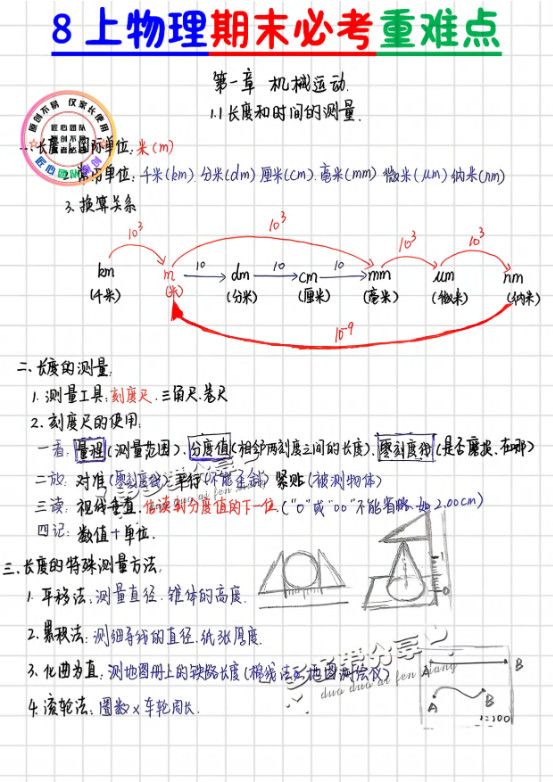 8上物理期末必考重难点
第一章 机械运动.
1.1 长度和时间的测量.
原创不易 仅家长使用
匠心团队
原创不易
匠心团队原创
一.长度 国际单位:米(m)
2.常用单位:千米(km) 分米(dm) 厘米(cm).毫米(mm) 微米(μm) 纳米(nm)
3.换算关系
10³ 10³ 10³ 10³
km m 10 dm 10 cm 10 mm μm nm
(千米) (米) (分米) (厘米) (毫米) (微米) (纳米)
10-9
二.长度的测量:
1.测量工具:刻度尺.三角尺.卷尺
2.刻度尺的使用.
一看:量程(测量范围).分度值(相邻两刻度之间的长度).零刻度线(是否磨损.在哪)
二放:对准(零刻度线) 平行(不能歪斜) 紧贴(被测物体)
三读:视线垂直.估读到分度值的下一位.("0"或"00"不能省略.如2.00cm)
四记:数值+单位.
三.长度的特殊测量方法:
1.平移法:测量直径.锥体的高度.
1
0
2.累积法:测细导线的直径.纸张厚度.
多多帮分享
duo duo ai fen xiang
3.化曲为直:测地图册上的铁路长度(棉线法or地图测绘仪)
A B
A B
1:100
4.滚轮法:圈数×车轮周长.